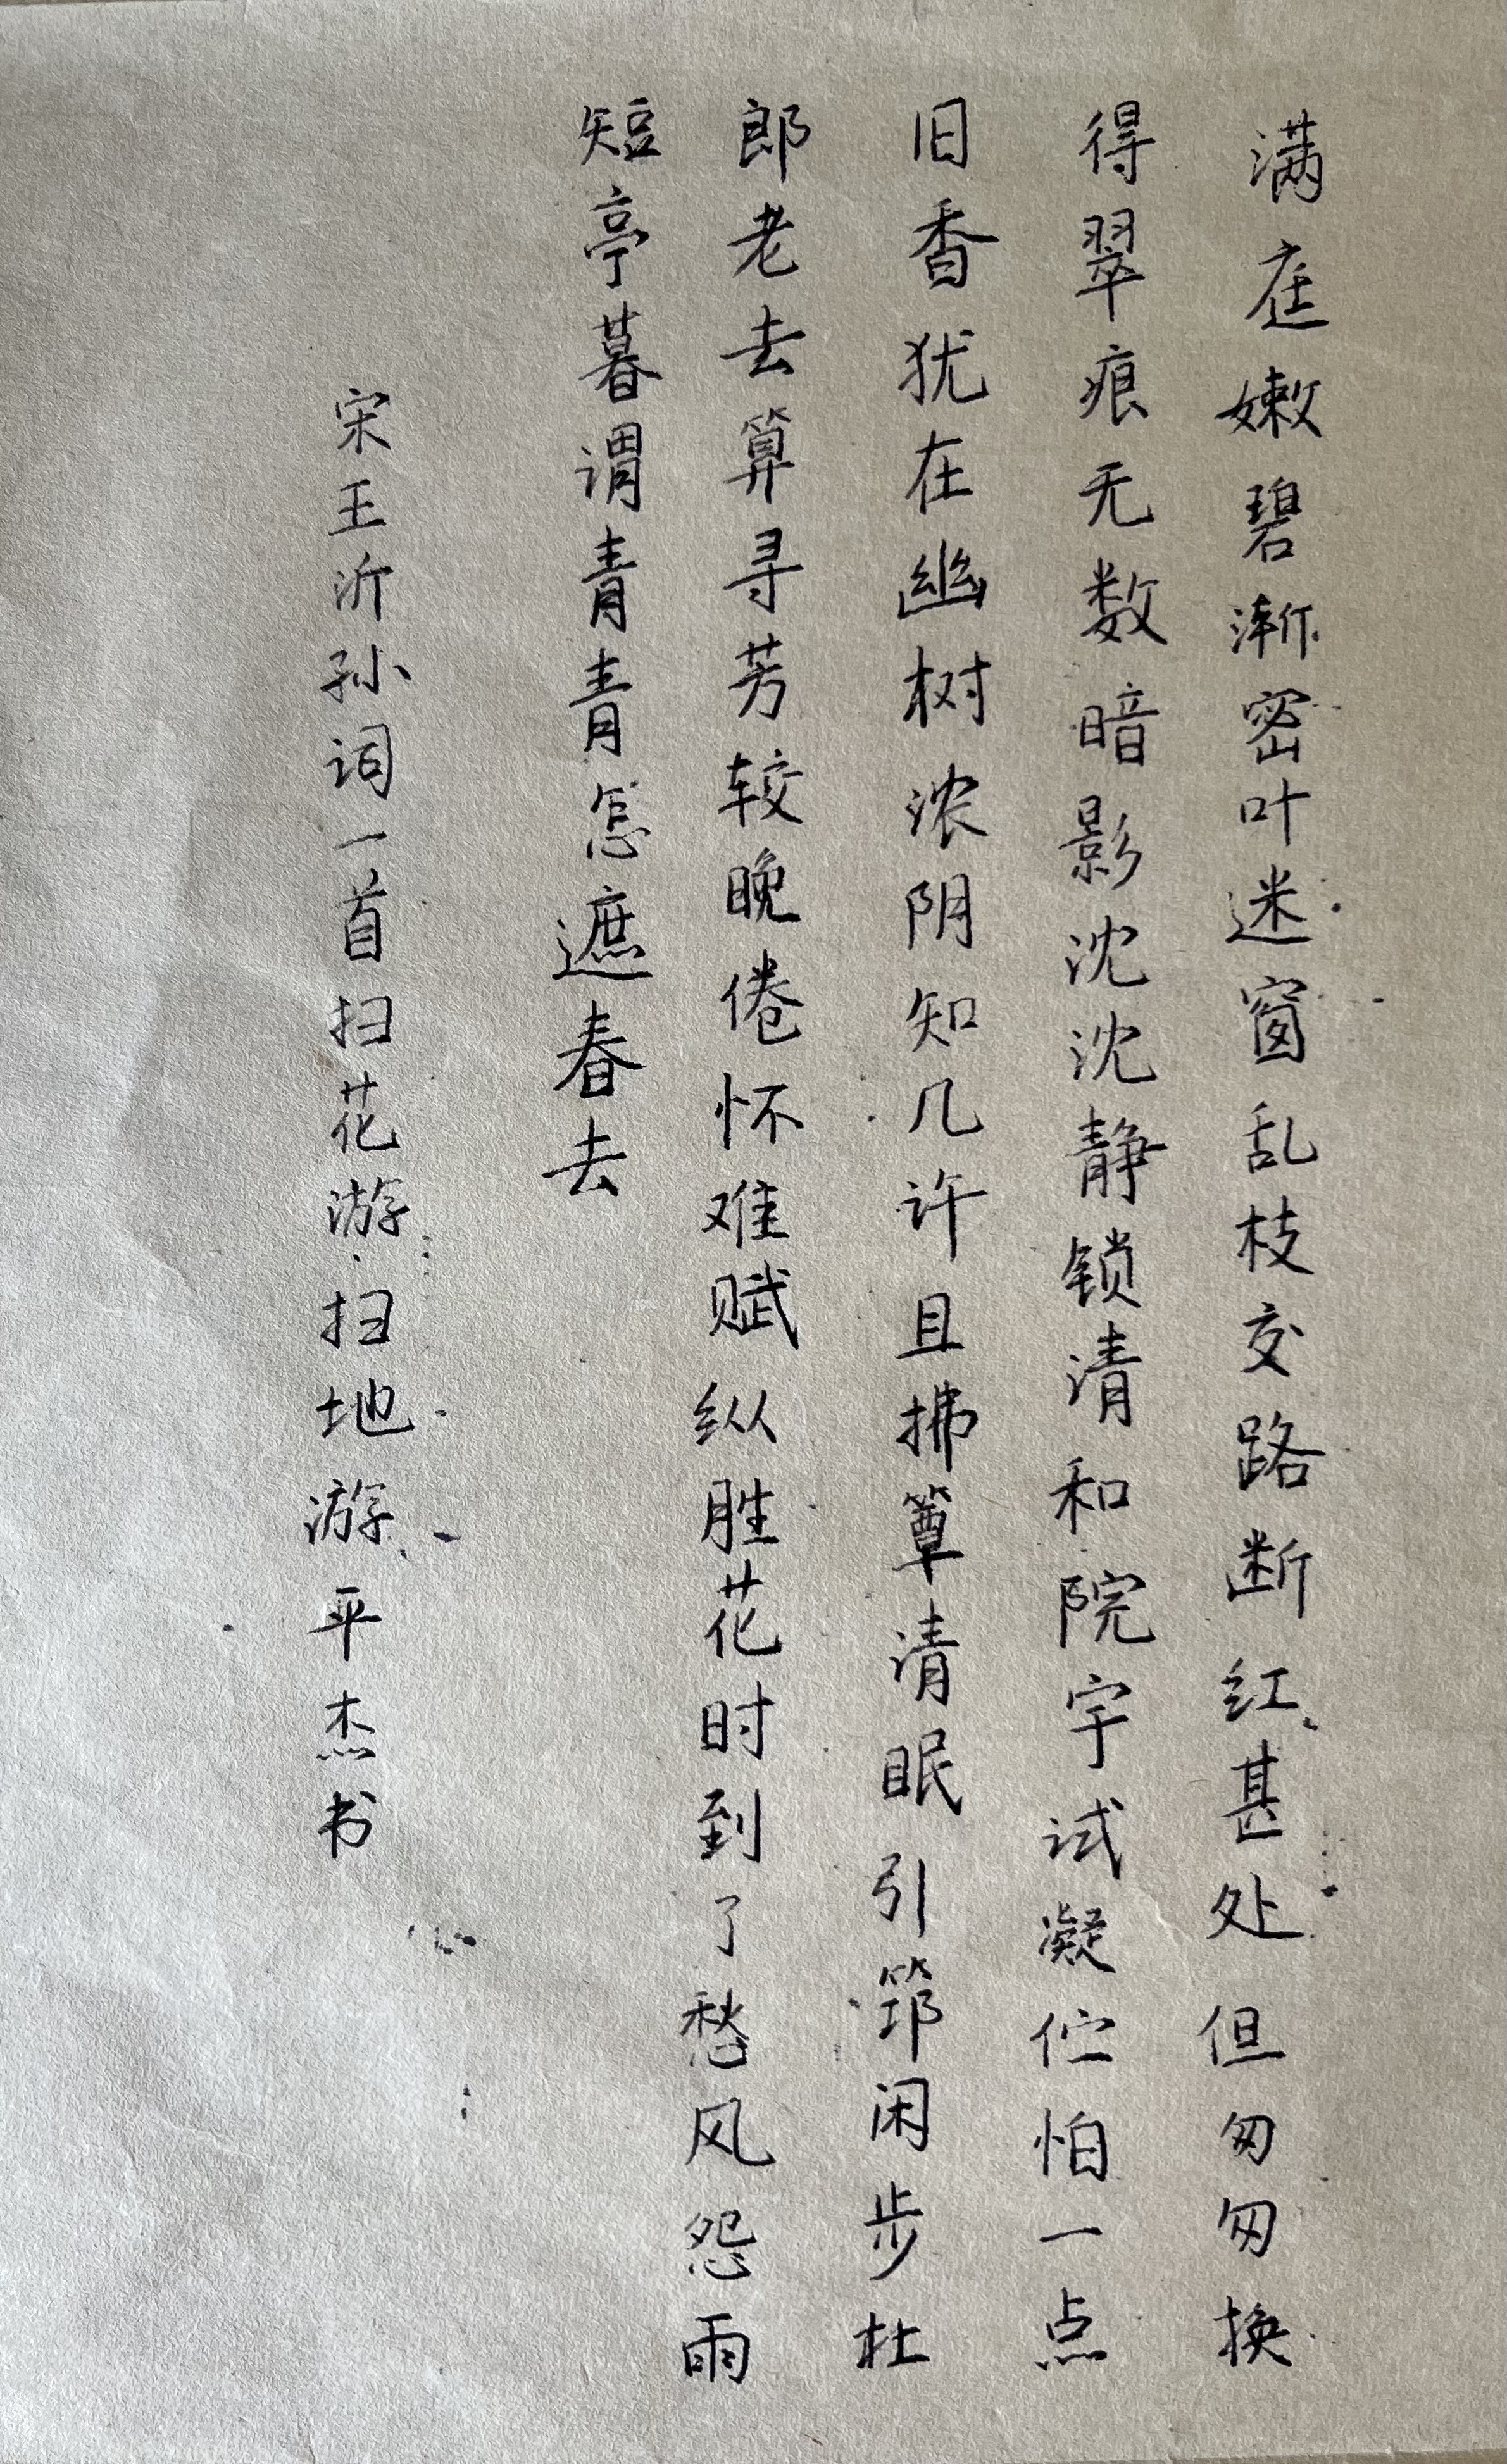 满庭嫩碧渐密叶迷窗乱枝交路断红甚处但匆匆换
得翠痕无数暗影沈沈静锁清和院宇试凝伫怕一点
旧香犹在幽树浓阴知几许且拂簟清眠引筇闲步杜
郎老去算寻芳较晚倦怀难赋纵胜花时到了愁风怨雨
短亭暮谓青青怎遮春去
宋王沂孙词一首扫花游扫地游平杰书